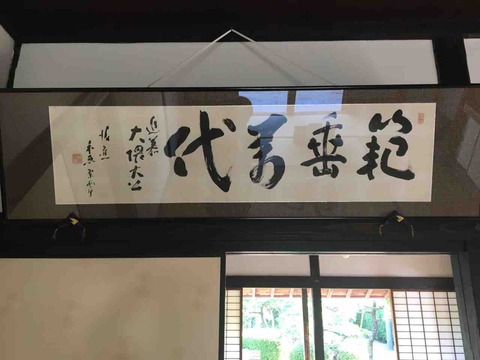 範垂萬代
追慕
大隈大公